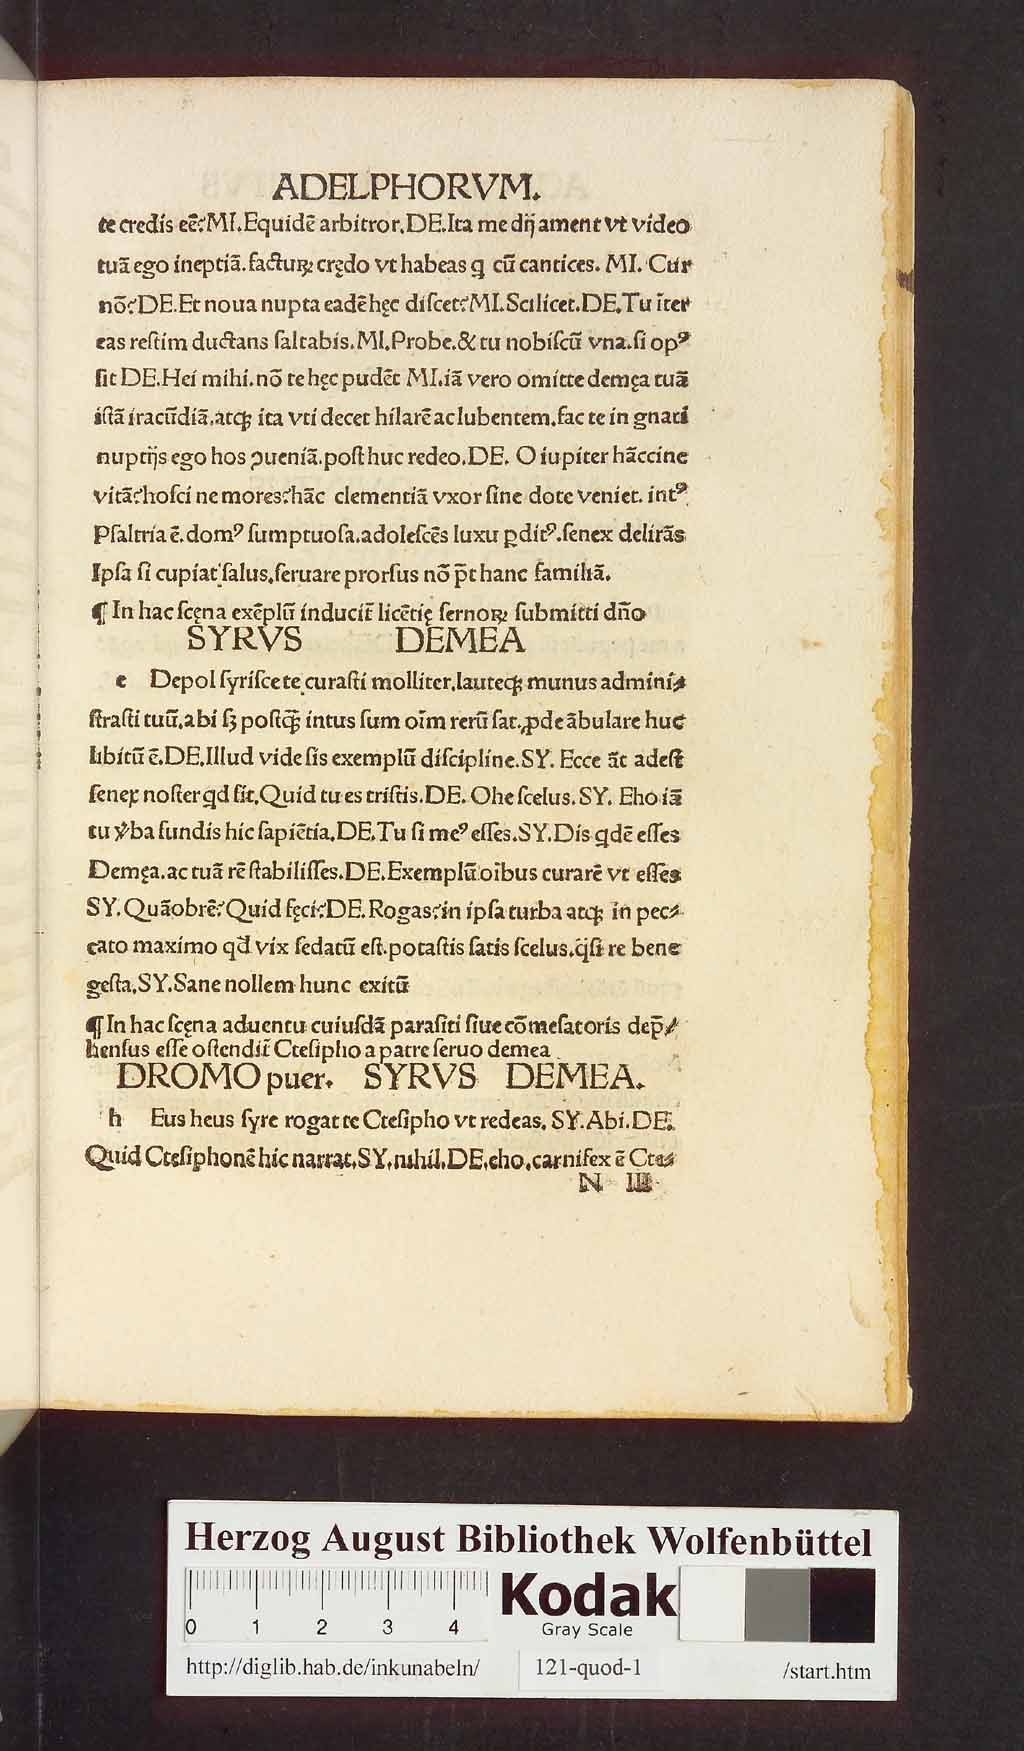 ADELPHORVM.
te credis eē?MI.Equidē arbitror.DE.Ita me dij ament vt video
tuā ego ineptiā.facturꝝ crędo vt habeas q cū cantices. MI. Cur
nō?DE.Et noua nupta eadē hęc discet?MI.Scilicet.DE.Tu īter
eas restim ductans saltabis.MI.Probe.&tu nobiscū vna.si opꝰ
sit DE.Hei mihi.nō te hęc pudēt MI.iā vero omitte demęa tuā
istā iracūdiā.atqꝫ ita vti decet hilarē ac lubentem.fac te in gnati
nuptijs ego hos ꝯueniā.post huc redeo.DE. O iupiter hāccine
vitā?hosci ne mores?hāc clementiā vxor sine dote veniet. intꝰ
Psaltria ē.domꝰ sumptuosa.adolescēs luxu ꝑditꝰ.senex delirās
Ipsa si cupiat salus.seruare prorsus nō p̄t hanc familiā.
¶ In hac scęna exēplū inducit̄ licētię sernoꝝ submitti dn̄o
SYRVS DEMEA
e Depol syrisce te curasti molliter.lauteqꝫ munus admini⸗
strasti tuū.abi sꝫ postqꝫ̄ intus sum oīm rerū sat.ꝓdeābulare huc
libitū ē.DE.Illud vide sis exemplū discipline.SY. Ecce āt adest
senex noster qd sit.Quid tu es tristis.DE. Ohe scelus.SY. Eho iā
tu ꝟba fundis hic sapiētia.DE.Tu si meꝰ esses.SY.Dis qdē esses
Demęa.ac tuā rē stabilisses.DE.Exemplū oībus curarē vt esses
SY.Quāobrē?Quid fęci?DE.Rogas?in ipsa turba atqꝫ in pec⸗
cato maximo qd̄ vix sedatū est.potastis satis scelus.q̄si re bene
gesta.SY.Sane nollem hunc exitū
¶ In hac scęna aduentu cuiusdā parasiti siue cōmesatoris dep̄⸗
hensus esse ostendit̄ Ctesipho a patre seruo demea
DROMO puer. SYRVS DEMEA.
h Eus heus syre rogat te Ctesipho vt redeas. SY.Abi.DE.
Quid Ctesiphonē hic narrat.SY.nihil.DE.eho.carnifex ē Ctes⸗
N III
Herzog August Bibliothek Wolfenbüttel
0 1 2 3 4
Kodak
Gray Scale
http://diglib.hab.de/inkunabeln/ 121-quod-1 /start.htm